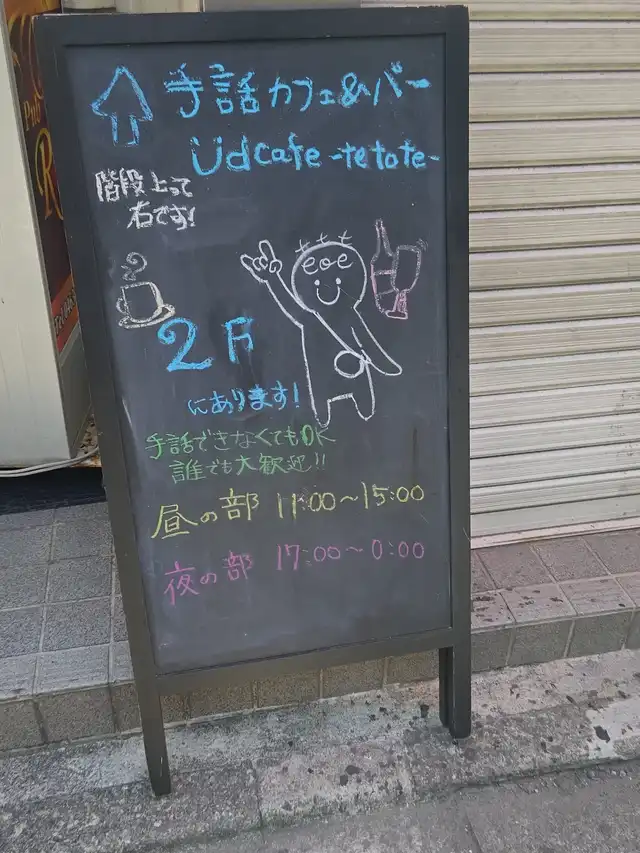 手話カフェ&バー
Udcafe -tetote-
階段上って
右です!
2F
にあります!
手話できなくてもOK
誰でも大歓迎!!
昼の部 11:00~15:00
夜の部 17:00~0:00